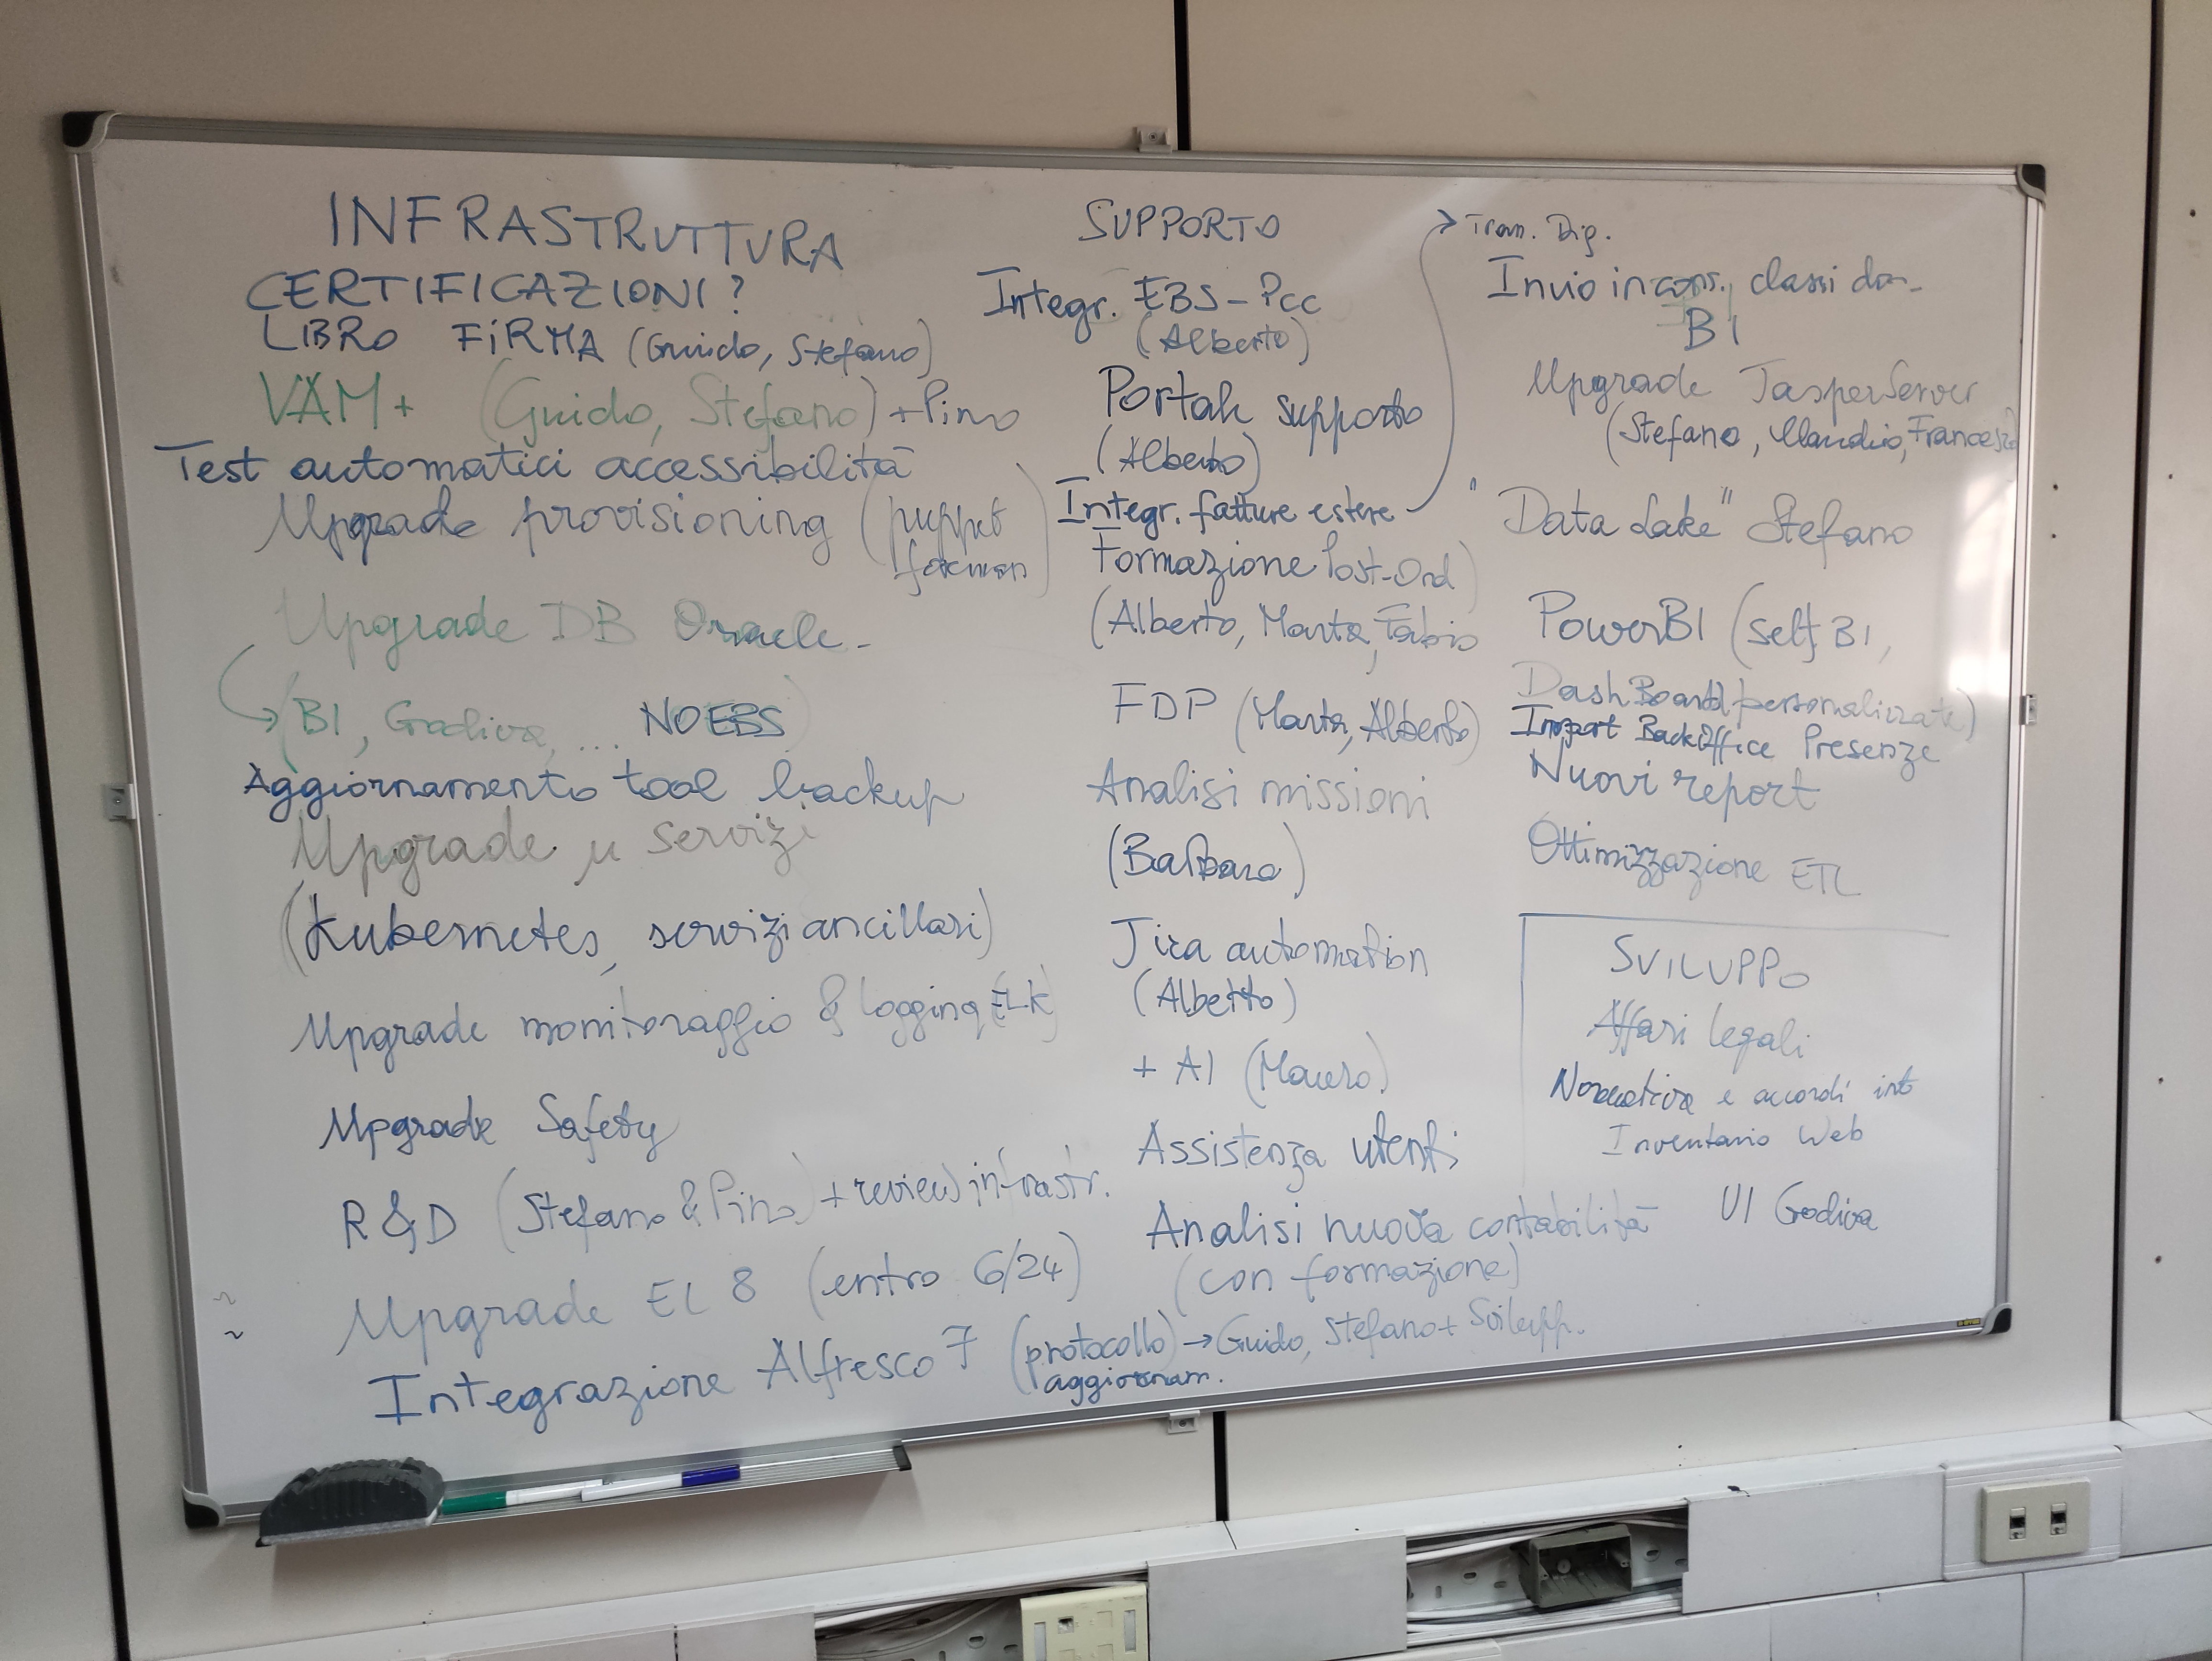 INFRASTRUTTURA
CERTIFICAZIONI?
LIBRO FIRMA (Guido, Stefano)
VAM+ (Guido, Stefano) + Pino
Test automatici accessibilità
Upgrade provisioning (puppet
foreman)
Upgrade DB Oracle -
→ (BI, Godiva, ... NO EBS)
Aggiornamento tool backup
Upgrade μ servizi
(Kubernetes, servizi ancillari)
Upgrade monitoraggio & logging (ELK)
Upgrade Safety
R&D (Stefano & Pino) + review infrastr.
Upgrade EL 8 (entro 6/24)
Integrazione Alfresco 7 (protocollo) → Guido, Stefano + Svilupp.
aggiornam.
SUPPORTO
Integr. EBS - PCC
(Alberto)
Portale supporto
(Alberto)
Integr. fatture estere
Formazione Post-Ord
(Alberto, Marta, Fabio)
FDP (Marta, Alberto)
Analisi missioni
(Barbara)
Jira automation
(Alberto)
+ AI (Mauro)
Assistenza utenti
Analisi nuova contabilità
(con formazione)
→ Tran. Dig.
Invio in cons. classi
BI
Upgrade JasperServer
(Stefano, Claudio, Francesco)
"Data Lake" Stefano
PowerBI (self BI,
DashBoard personalizzate)
Import BackOffice Presenze
Nuovi report
Ottimizzazione ETL
SVILUPPO
Affari legali
Normativa e accordi int
Inventario Web
UI Godiva